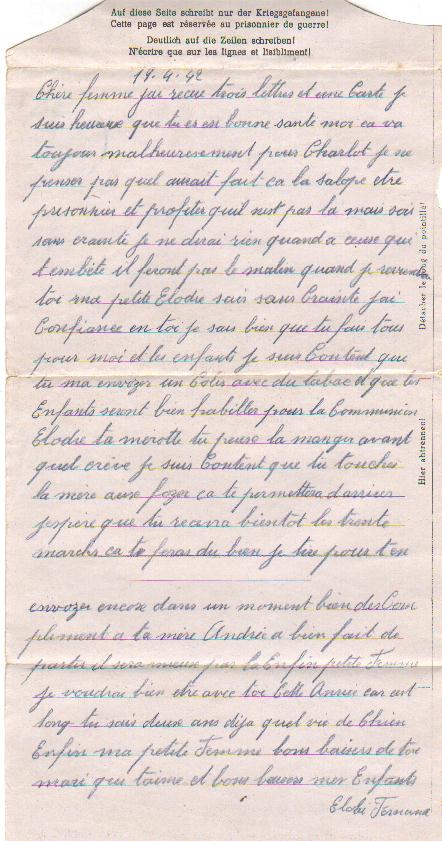 Auf diese Seite schreibt nur der Kriegsgefangene!
Cette page est réservée au prisonnier de guerre!
Deutlich auf die Zeilen schreiben!
N'écrire que sur les lignes et lisiblment!
19.4.42
Chère femme jai recue trois lettres et une Carte je
suis heureux que tu es en bonne sante moi ca va
toujour malheuresement pour Charlot je ne
penser pas quel aurait fait ca la salope etre
prisonnier et profiter quil nest pas la mais sois
sans crainte je ne dirai rien quand a ceuse qui
t'embète il feront pas le malin quand je
toi ma petite Elodie sois sans Crainte jai
Confiance en toi je sais bien que tu fais tous
pour moi et les enfants je suis Content que
tu ma envoyer un Colis avec du tabac et que les
Enfants seront bien habiller pour la Communion
Elodie ta tu peuse la manger avant
quel crève je suis Content que tu touches
la mère ause ca te permettera
jespère que tu recevra bientot les trente
marcks ca te feras du bien je tire pour ten
envoyer encore dans un moment bien des Com
pliment a ta mère Andrée a bien fait de
partir il sera mieux par la Enfin petite Femme
je voudrai bien etre avec toi Cette Année car cest
long tu sais deuse ans dija quel vie de Chien
Enfin ma petite Femme bons baisers de ton
mari qui taime et bons baisers mes Enfants
Fernand
Détacher le long du pointillé!
Hier abtrennen!